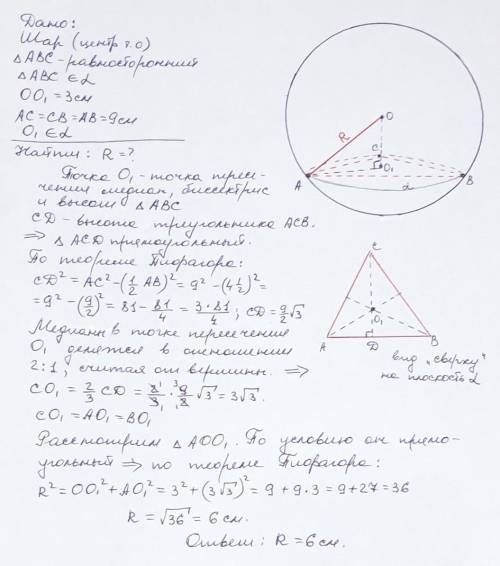 Дано:
Шар (центр т.О)
△ABC - равносторонний
△ABC ∈ α
OO₁ = 3 см
AC = CB = AB = 9 см
O₁ ∈ α
Найти: R = ?
Точка O₁ - точка пересе-
чения медиан, биссектрис
и высот △ABC
CD - высота треугольника ACB.
⇒ △ACD прямоугольный.
По теореме Пифагора:
CD² = AC² - (1/2 AB)² = 9² - (4 1/2)² =
= 9² - (9/2)² = 81 - 81/4 = 3·81/4 ; CD = 9/2 √3
Медианы в точке пересечения
O₁ делятся в отношении
2:1, считая от вершины. ⇒
CO₁ = 2/3 CD = 2/3 · 9/2 √3 = 3√3.
CO₁ = AO₁ = BO₁
Рассмотрим △AOO₁. По условию он прямо-
угольный ⇒ по теореме Пифагора:
R² = OO₁² + AO₁² = 3² + (3√3)² = 9 + 9·3 = 9 + 27 = 36
R = √36 = 6 см.
Ответ: R = 6 см.
O
R
C
O₁
A
α
B
C
O₁
A
D
B
вид „сверху"
на плоскость α